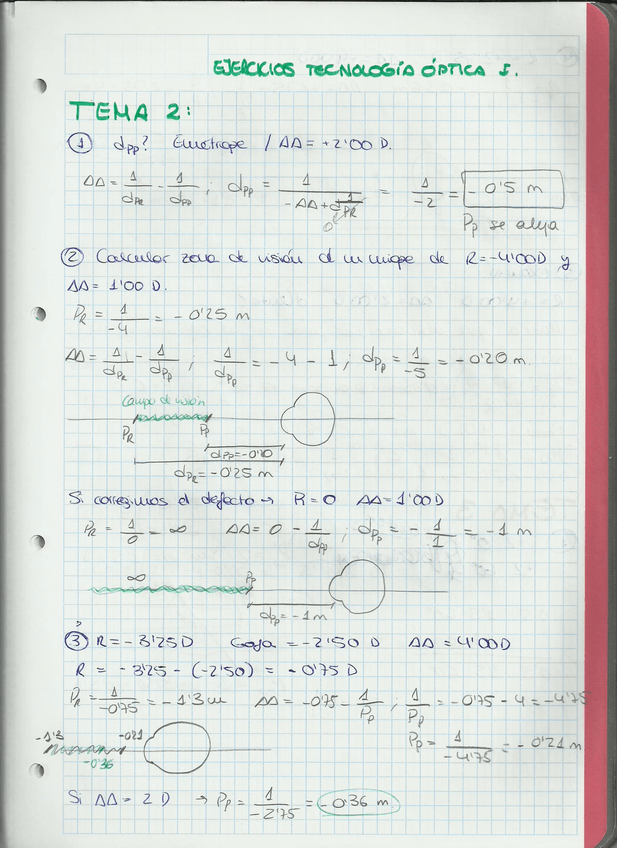 EJERCICIOS TECNOLOGÍA ÓPTICA I.
TEMA 2:
① dpp? Emetrope / AA = +2'00 D.
AA = 1/dPR - 1/dPP ; dPP = 1/(-AA + 1/dPR) = 1/-2 = -0'5 m
0
Pp se aleja
② Calcular zona de visión d un miope de R = -4'00D y
AA = 1'00 D.
PR = 1/-4 = -0'25 m
AA = 1/dPR - 1/dPp ; 1/dPp = -4 - 1 ; dPp = 1/-5 = -0'20 m.
Campo de visión
PR Pp
dPp = -0'20
dPR = -0'25 m
Si corregimos el defecto → R = 0 AA = 1'00D
PR = 1/0 = ∞ AA = 0 - 1/dPp ; dPp = - 1/1 = -1 m
∞ Pp
dPp = -1 m
③ R = -3'25D Gafa = -2'50 D AA = 4'00D
R = -3'25 - (-2'50) = -0'75 D
PR = 1/-0'75 = -1'3 m AA = -0'75 - 1/Pp ; 1/Pp = -0'75 - 4 = -4'75
Pp = 1/-4'75 = -0'21 m
-1'3 -0'21
-0'36
Si AA = 2 D → Pp = 1/-2'75 = -0'36 m.